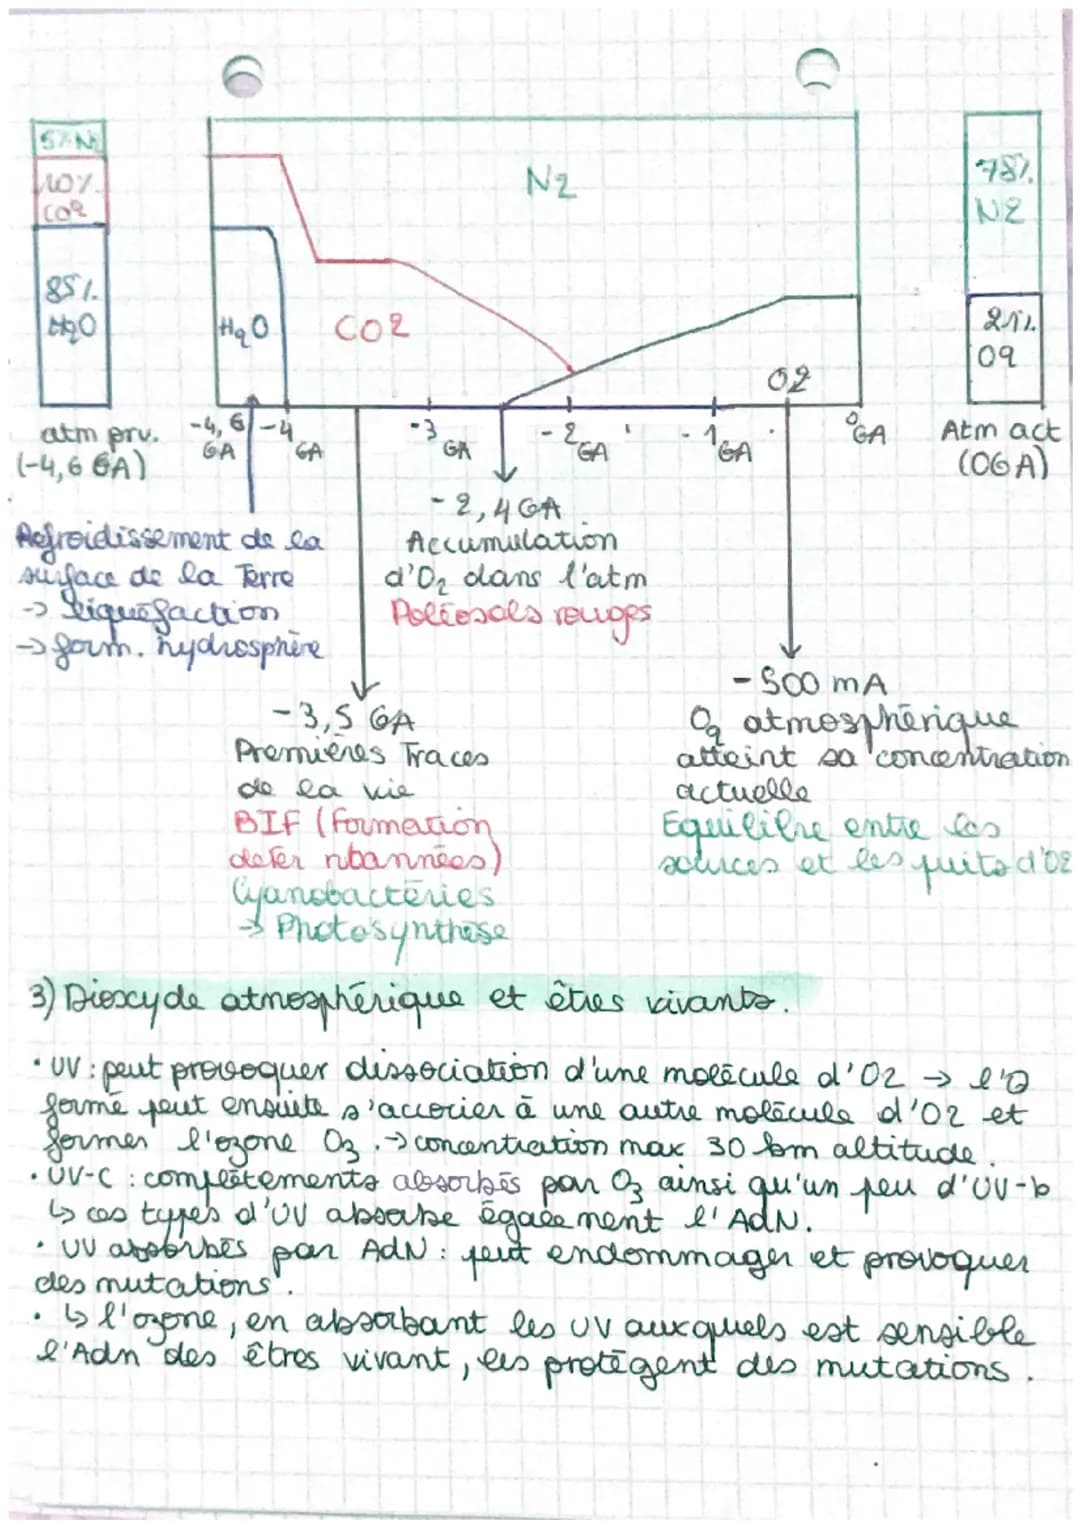 5% N2
10%
CO2
85%
H2O
N2
H2O
CO2
O2
78%
N2
21%
O2
-4,6 GA
-4 GA
-3 GA
-2 GA
-1 GA
0 GA
atm prv.
(-4,6 GA)
Atm act
(0GA)
Refroidissement de la
surface de la Terre
-> liquéfaction
-> form. hydrosphère
-2,4 GA
Accumulation
d'O2 dans l'atm
Paléosols rouges
-3,5 GA
Premières Traces
de la vie
BIF (Formation
de fer rubannées)
Cyanobactéries
-> Photosynthèse
-500 mA
O2 atmosphérique
atteint sa concentration
actuelle
Equilibre entre les
sources et les puits d'O2
3) Dioxyde atmosphérique et êtres vivants.
• UV : peut provoquer dissociation d'une molécule d'O2 → l'O
formé peut ensuite s'accocier à une autre molécule d'O2 et
former l'ozone O3. → concentration max 30 km altitude.
• UV-C : complètements absorbés par O3 ainsi qu'un peu d'UV-b
↳ ces types d'UV absorbe également l'AdN.
• UV absorbés par AdN : peut endommager et provoquer
des mutations.
• ↳ l'ozone, en absorbant les UV auxquels est sensible
l'Adn des êtres vivant, les protègent des mutations.